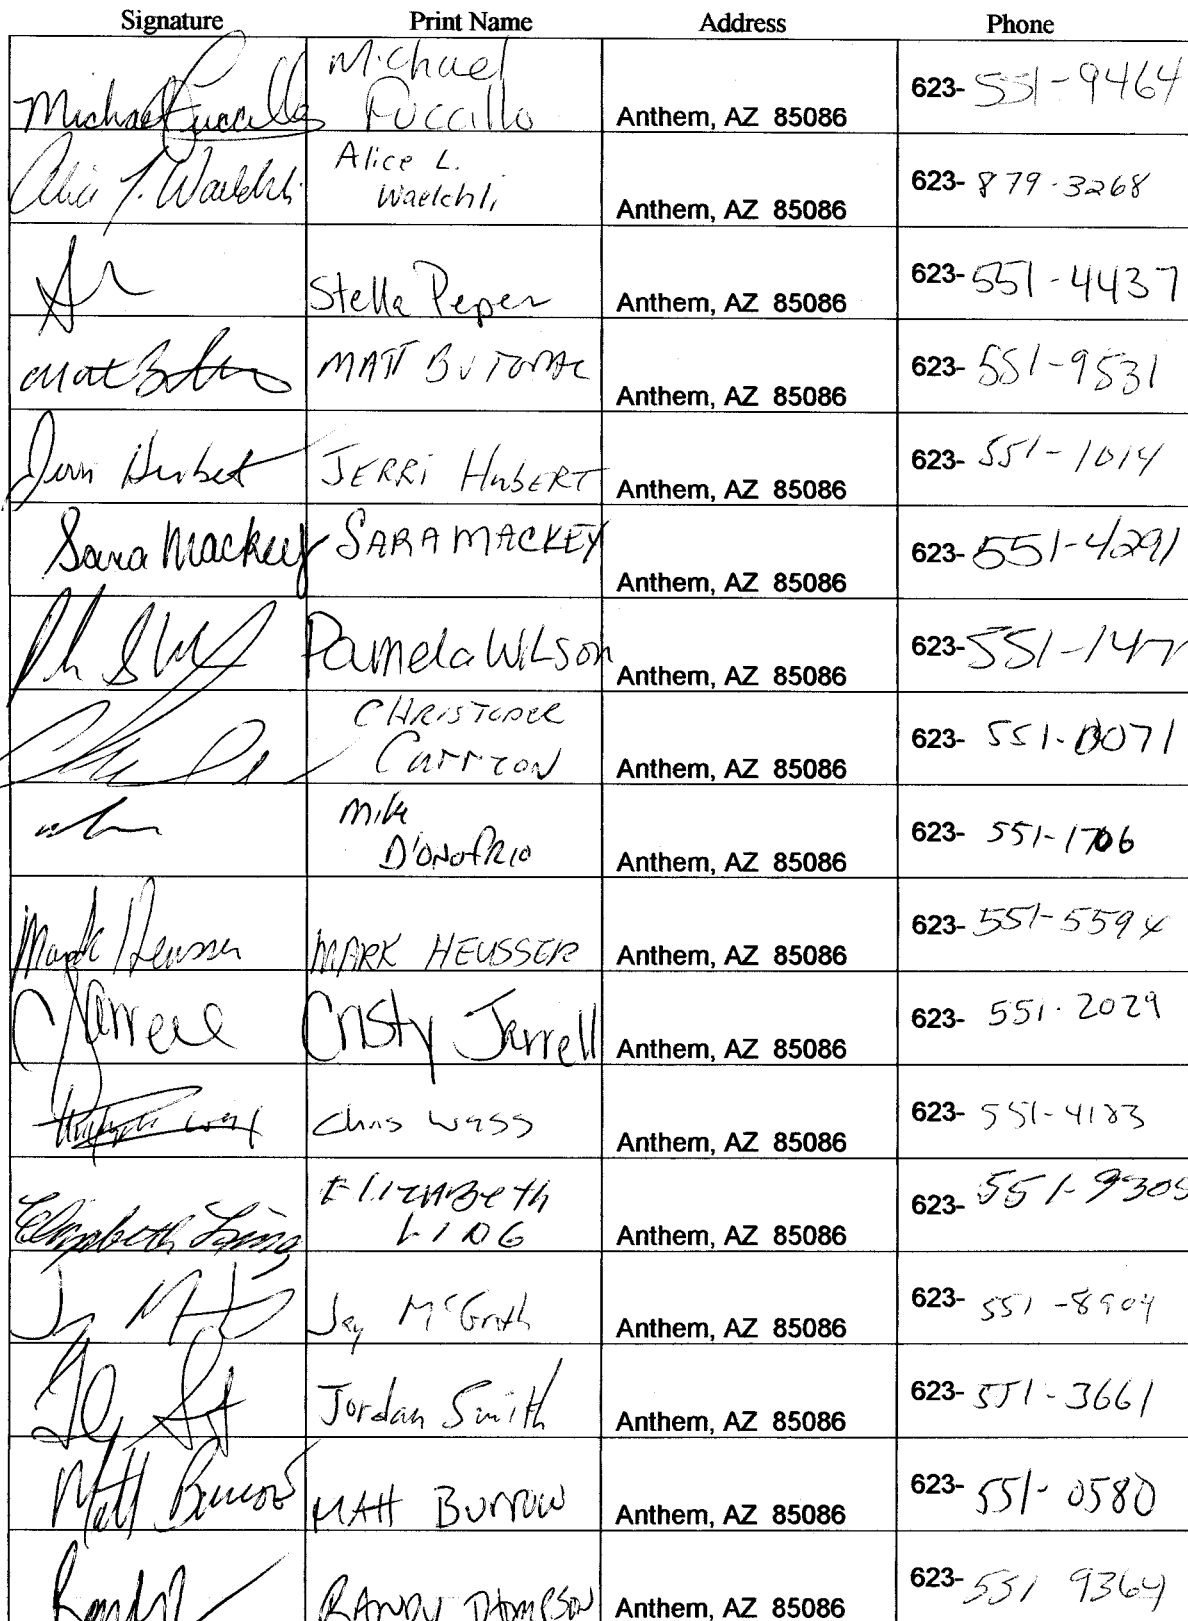 Signature Print Name Address Phone
Michael Puccillo Michael Puccillo Anthem, AZ 85086 623- 551-9464
Alice L. Waelchli Alice L. Waelchli Anthem, AZ 85086 623- 879-3268
Stella Peper Anthem, AZ 85086 623- 551-4437
MATT BUTORAC Anthem, AZ 85086 623- 551-9531
Jerri Hubert JERRi HUBERT Anthem, AZ 85086 623- 551-1014
Sara Mackey SARA MACKEY Anthem, AZ 85086 623- 551-4291
Pamela WiLSon Anthem, AZ 85086 623- 551-147
CHRISTOPER Anthem, AZ 85086 623- 551-0071
Mike D'ONOFRIO Anthem, AZ 85086 623- 551-1706
Mark Heusser MARK HEUSSER Anthem, AZ 85086 623- 551-5594
C Jarrell Cristy Jarrell Anthem, AZ 85086 623- 551-2029
Chris Wass Anthem, AZ 85086 623- 551-4183
Elizabeth Ling ELIZABeth LING Anthem, AZ 85086 623- 551-9305
Jay McGrath Anthem, AZ 85086 623- 551-8904
Jordan Smith Anthem, AZ 85086 623- 551-3661
Matt Burrow MAtt BURROW Anthem, AZ 85086 623- 551-0580
RANDY THOMPSON Anthem, AZ 85086 623- 551 9364